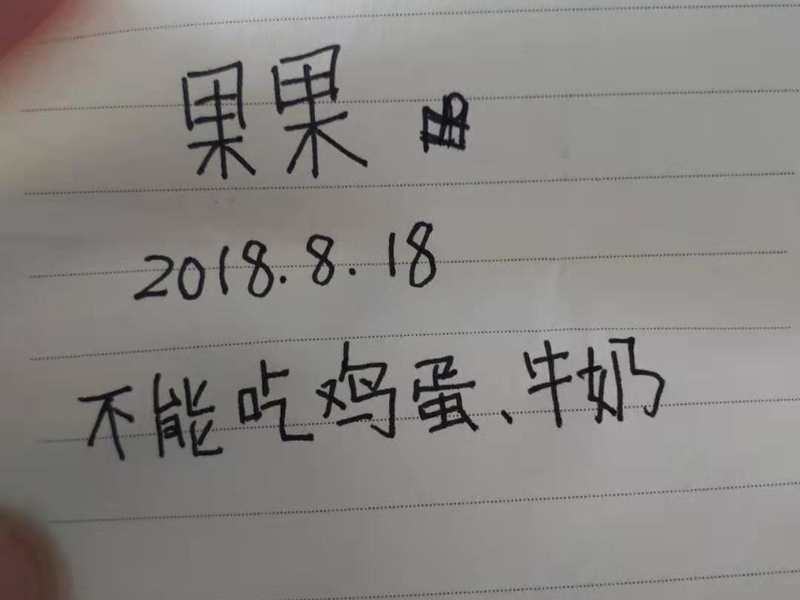 果果
2018.8.18
不能吃鸡蛋、牛奶